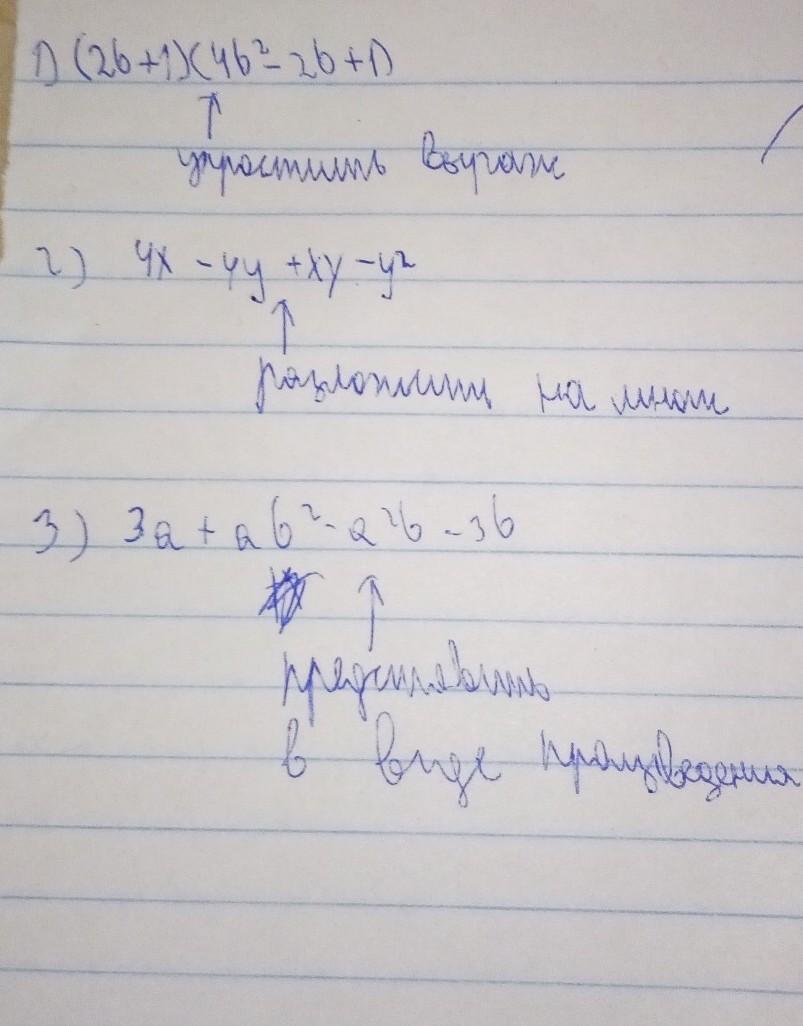 1) (2b+1)(4b²-2b+1)
упростить выраж
2) 4x -4y +xy -y²
разложить на множ
3) 3a + ab² - a²b - 3b
представить
в виде произведения